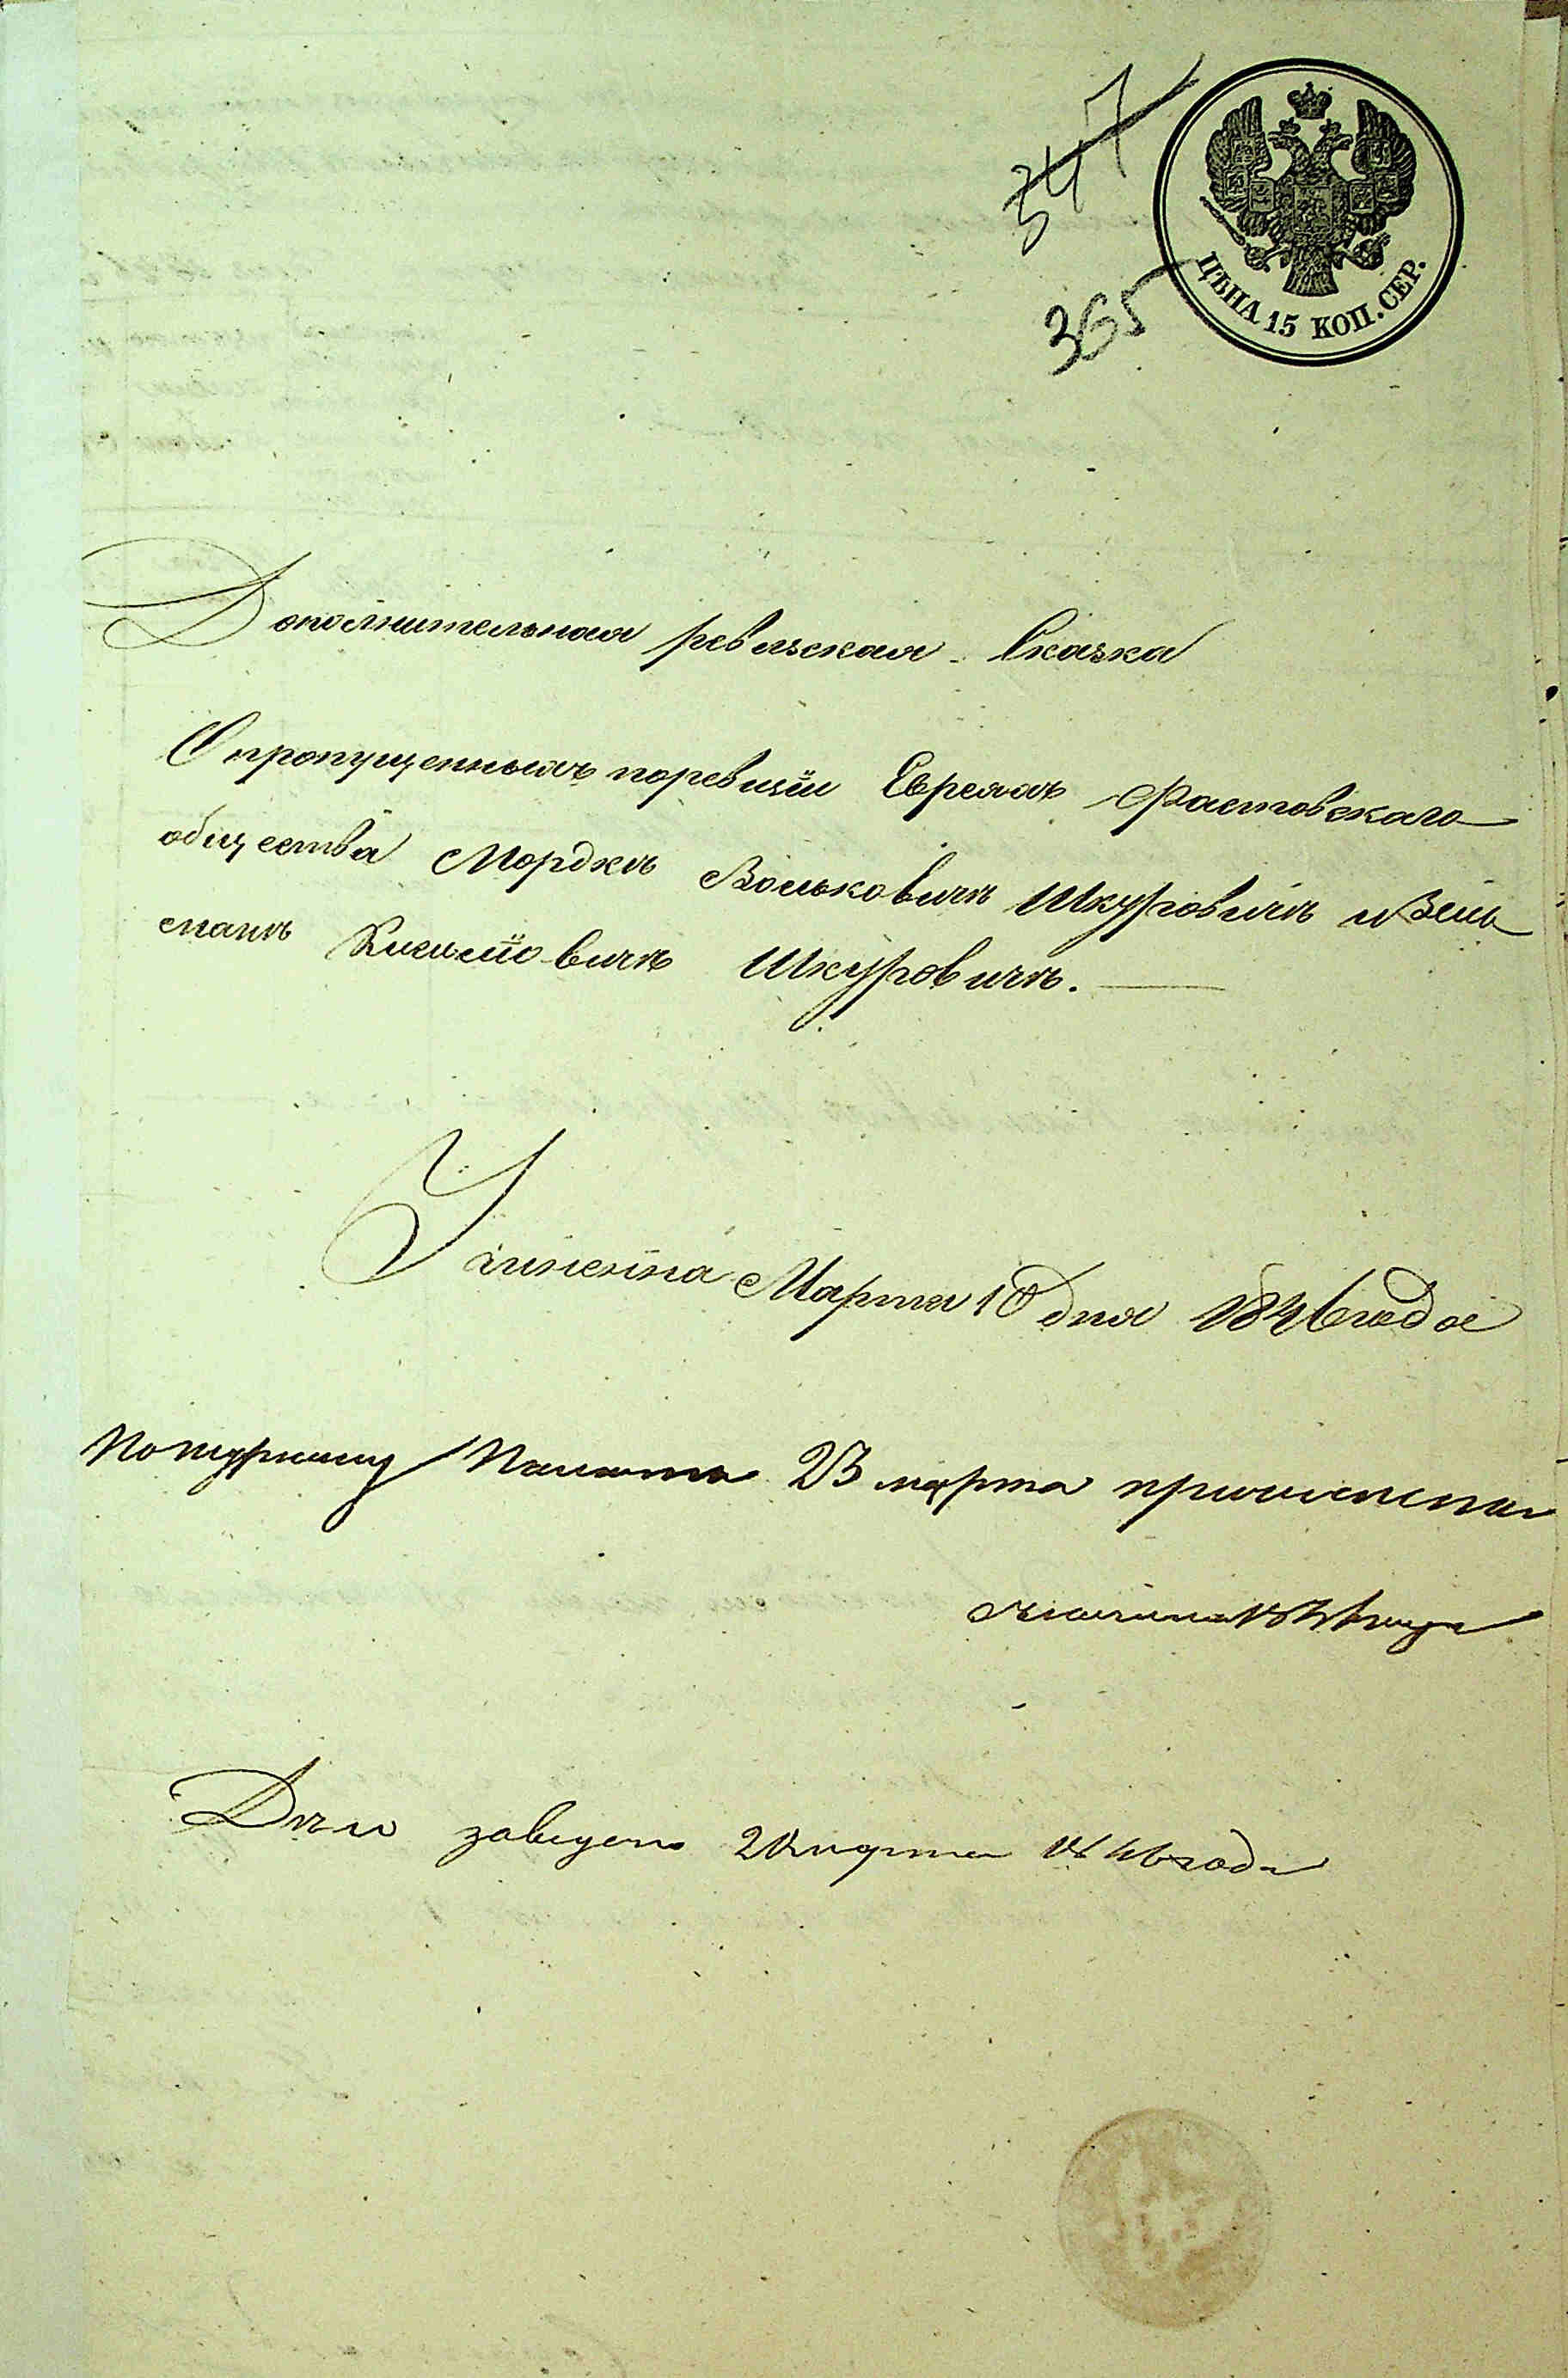 347
365
ЦѢНА 15 КОП. СЕР.
Дополнительная ревизская Сказка
О пропущенныхъ поревизіи Евреяхъ Фастовскаго
общества Мордкѣ Вольковичѣ Шкуровичѣ и Зель
манѣ Шкуровичѣ.
Учинена Марта 10 дня 1846 года
По журналу Палаты 23 марта
Дѣло заведено 20 марта 1846 года